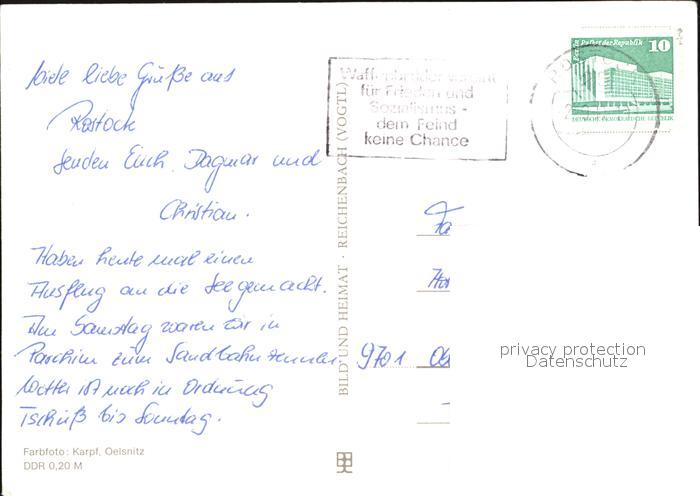 Viele liebe Grüße aus
Rostock
senden Euch Dagmar und
Christian.
Haben heute mal einen
Ausflug an die See gemacht.
Am Samstag waren wir in
Parchim zum Sandbahnrennen
Wetter ist noch in Ordnung
Tschüß bis Sonntag.
Farbfoto: Karpf, Oelsnitz
DDR 0,20 M
BILD UND HEIMAT · REICHENBACH (VOGTL)
Waffenbrüder vereint
für Frieden und
Sozialismus -
dem Feind
keine Chance
Palast der Republik 10
DEUTSCHE DEMOKRATISCHE REPUBLIK
Fa
9701
privacy protection
Datenschutz